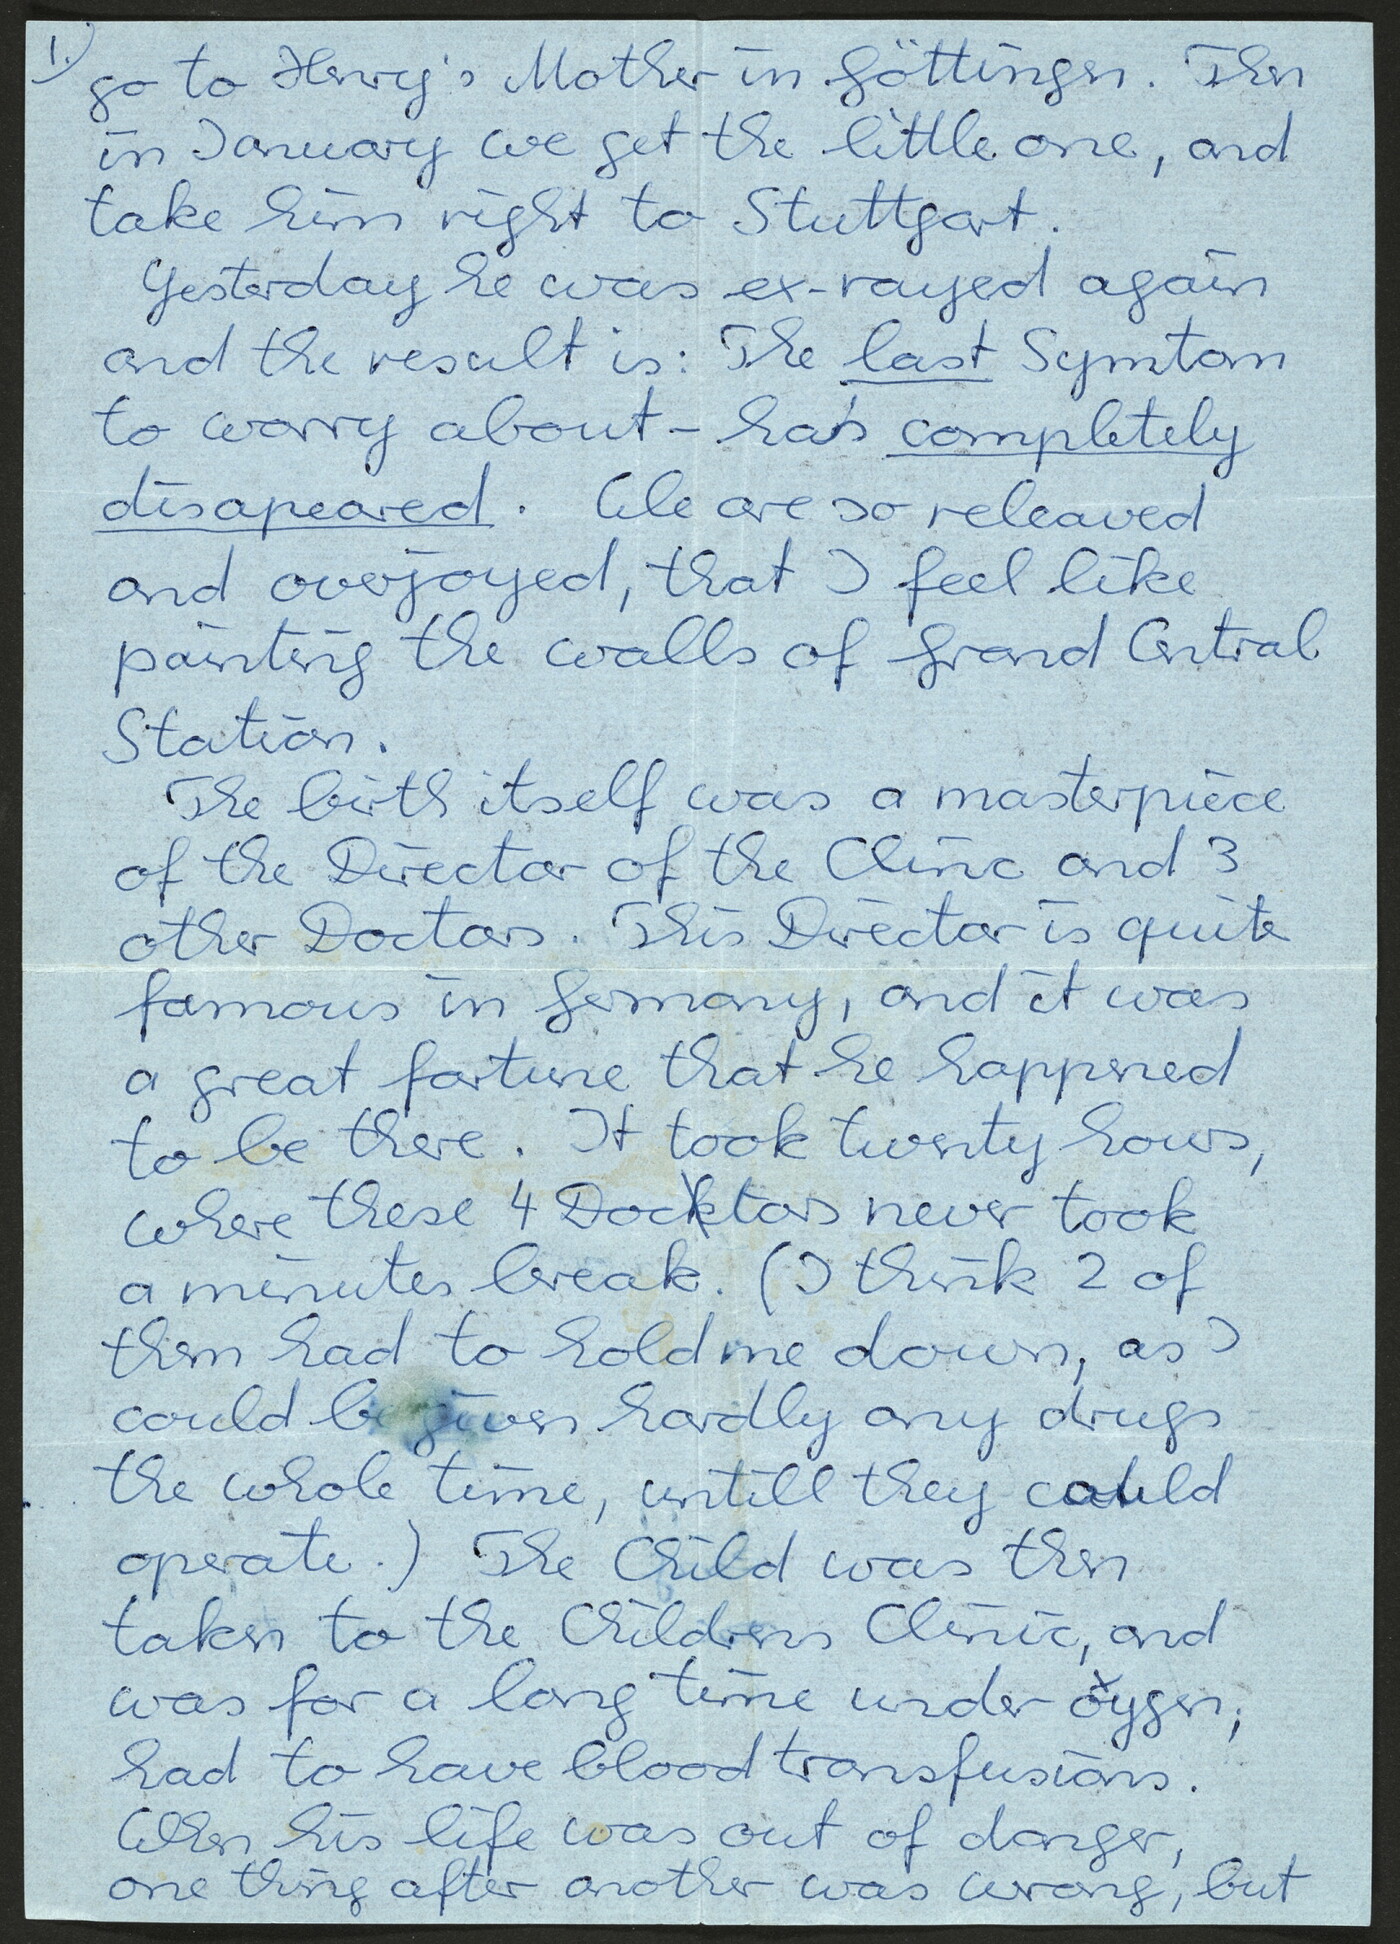 1.)
go to Henry's Mother in Göttingen. Then
in January we get the little one, and
take him right to Stuttgart.
Yesterday he was ex-rayed again
and the result is: The last Symtom
to worry about - has completely
disapeared. We are so releaved
and overjoyed, that I feel like
painting the walls of Grand Central
Station.
The birth itself was a masterpiece
of the Director of the Clinic and 3
other Doctors. This Director is quite
famous in Germany, and it was
a great fortune that he happened
to be there. It took twenty hours,
where these 4 Docktors never took
a minutes break. (I think 2 of
them had to hold me down, as I
could be given hardly any drugs
the whole time, untill they could
operate.) The Child was then
taken to the Childrens Clinic, and
was for a long time under oxygen,
had to have blood transfusions.
When his life was out of danger,
one thing after another was wrong, but